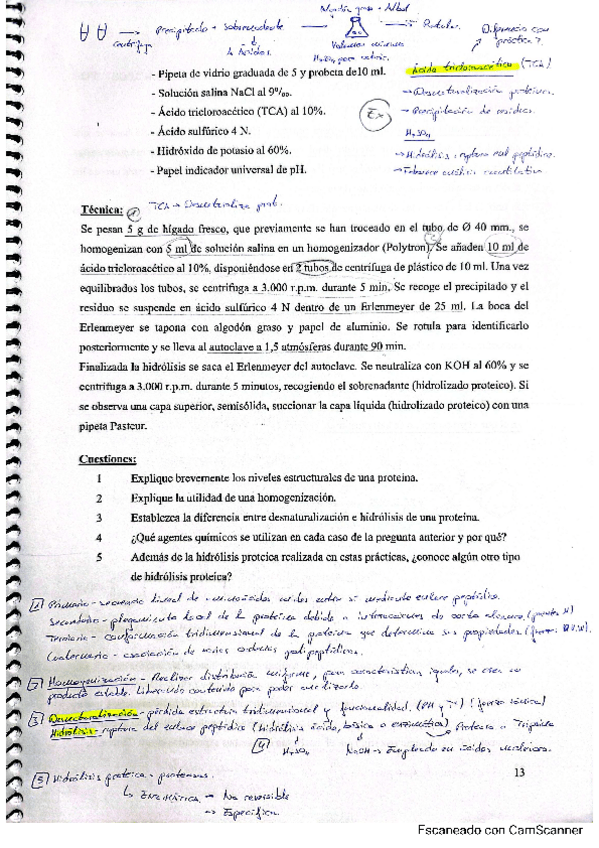 Precipitado + Sobrenadante
Centrífuga
Ácido tricloroacético (TCA)
- Pipeta de vidrio graduada de 5 y probeta de10 ml.
→ Desnaturalización proteínas.
- Solución salina NaCl al 9º/₀₀.
→ Precipitación de residuos.
- Ácido tricloroacético (TCA) al 10%.
Ex
- Ácido sulfúrico 4 N.
H₂SO₄
- Hidróxido de potasio al 60%.
→ Hidrólisis: ruptura enl peptídico.
- Papel indicador universal de pH.
Técnica:
TCA → Desnaturaliza prot.
Se pesan 5 g de hígado fresco, que previamente se han troceado en el tubo de Ø 40 mm., se
homogenizan con 5 ml de solución salina en un homogenizador (Polytron). Se añaden 10 ml de
ácido tricloroacético al 10%, disponiéndose en 2 tubos de centrifuga de plástico de 10 ml. Una vez
equilibrados los tubos, se centrifuga a 3.000 r.p.m. durante 5 min. Se recoge el precipitado y el
residuo se suspende en ácido sulfúrico 4 N dentro de un Erlenmeyer de 25 ml. La boca del
Erlenmeyer se tapona con algodón graso y papel de aluminio. Se rotula para identificarlo
posteriormente y se lleva al autoclave a 1,5 atmósferas durante 90 min.
Finalizada la hidrólisis se saca el Erlenmeyer del autoclave. Se neutraliza con KOH al 60% y se
centrifuga a 3.000 r.p.m. durante 5 minutos, recogiendo el sobrenadante (hidrolizado proteico). Si
se observa una capa superior, semisólida, succionar la capa líquida (hidrolizado proteico) con una
pipeta Pasteur.
Cuestiones:
1 Explique brevemente los niveles estructurales de una proteína.
2 Explique la utilidad de una homogenización.
3 Establezca la diferencia entre desnaturalización e hidrólisis de una proteína.
4 ¿Qué agentes químicos se utilizan en cada caso de la pregunta anterior y por qué?
5 Además de la hidrólisis proteica realizada en estas prácticas, ¿conoce algún otro tipo
de hidrólisis proteica?
1 Primaria - secuencia lineal de aminoácidos unidos entre sí mediante enlace peptídico.
Secundaria - plegamiento local de la proteína debido a interacciones de corto alcance (puentes H)
Terciaria - conformación tridimensional de la proteína que determina sus propiedades
Cuaternaria - asociación de varias cadenas polipeptídicas.
2 Homogenización - Realizar distribución uniforme, para características iguales, se crea un
producto estable. Liberando contenido para poder analizarlo.
3 Desnaturalización - pérdida estructura tridimensional y funcionalidad. (PH y Tª)
Hidrólisis - ruptura del enlace peptídico (hidrólisis ácida, básica o enzimática) Proteasa o Tripsina
4 H₂SO₄ NaOH →
5 Hidrólisis proteica - proteasas.
↳ ENZIMÁTICA → No reversible
→ Específica.
13
Escaneado con CamScanner